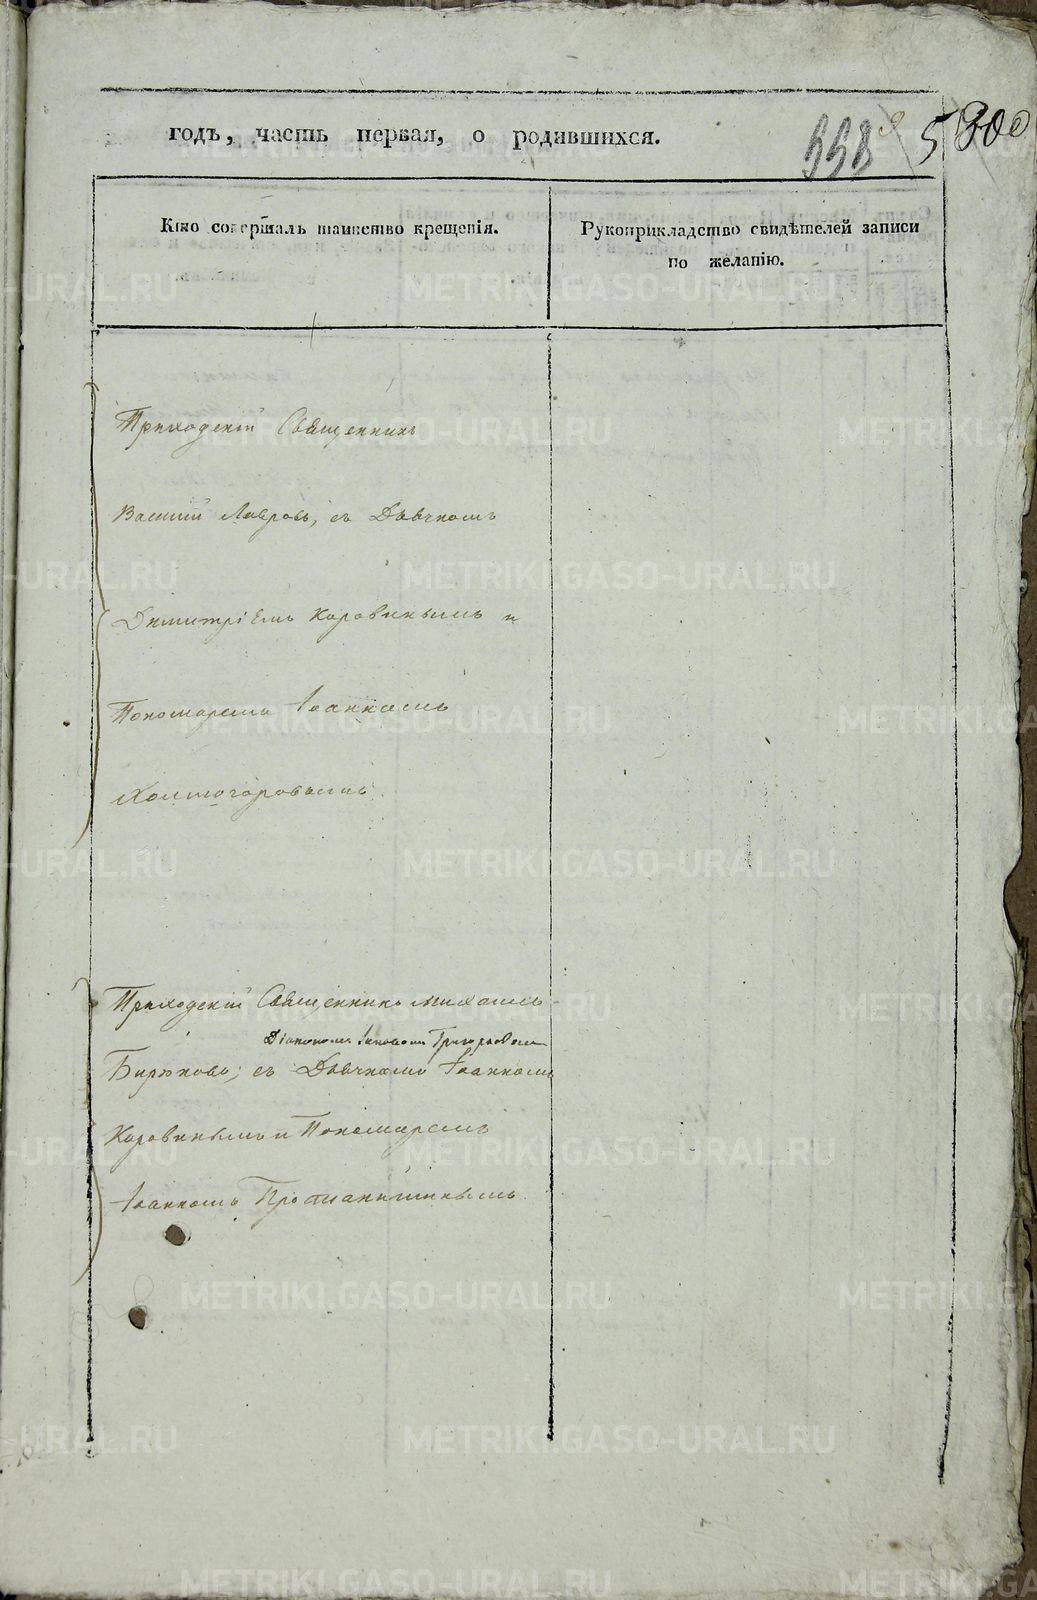 годъ, часть первая, о родившихся.
558
Кто совершалъ таинство крещенія.
Рукоприкладство свидѣтелей записи
по желанію.
Приходскій Священникъ
Василій Лавровъ, съ Дьячкомъ
Димитріемъ Коровинымъ и
Пономаремъ Іоанномъ
Холмогоровымъ.
Приходскій Священникъ Михаилъ
Діакономъ Іаковомъ Григорьевом
Бирюковъ, съ Дьячкомъ Іоанномъ
Коровинымъ и Пономаремъ
Іоанномъ
METRIKI.GASO-URAL.RU